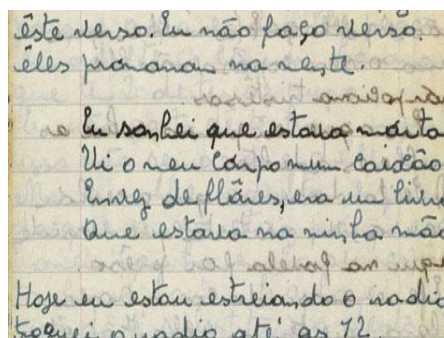 êste verso. Eu não faço verso.
êles
Eu sonhei que estava morta
Vi o meu corpo num caixão
Envez de flôres, era um livro
Que estava na minha mão
Hoje eu estou estreiando o radio
toquei o radio até as 12.